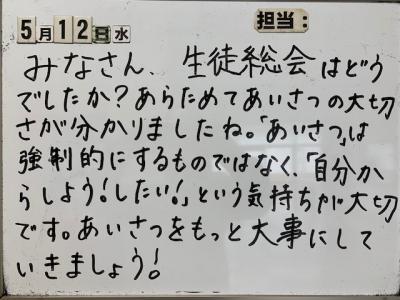 担当:
5月12日水
みなさん、生徒総会はどう
でしたか?あらためてあいさつの大切
さが分かりましたね。「あいさつ」は
強制的にするものではなく、「自分か
らしよう!したい!」という気持ちが大切
です。あいさつをもっと大事にして
いきましょう!